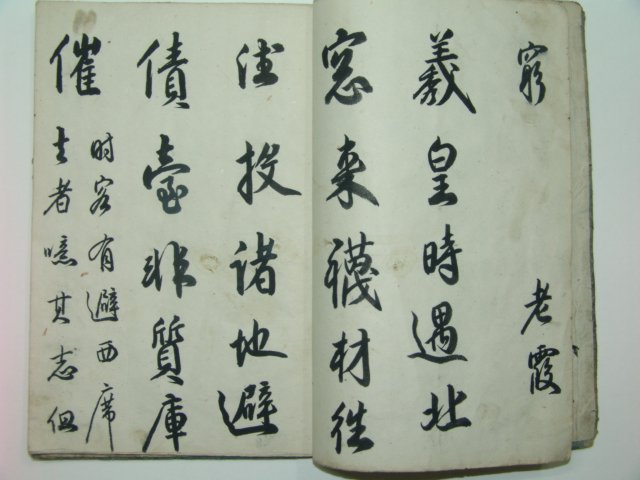 窮 老霞
羲皇時遇北
窓來襪材徃
往投諸地避
債臺非質庫
催
时客有避西席
者噫其志但